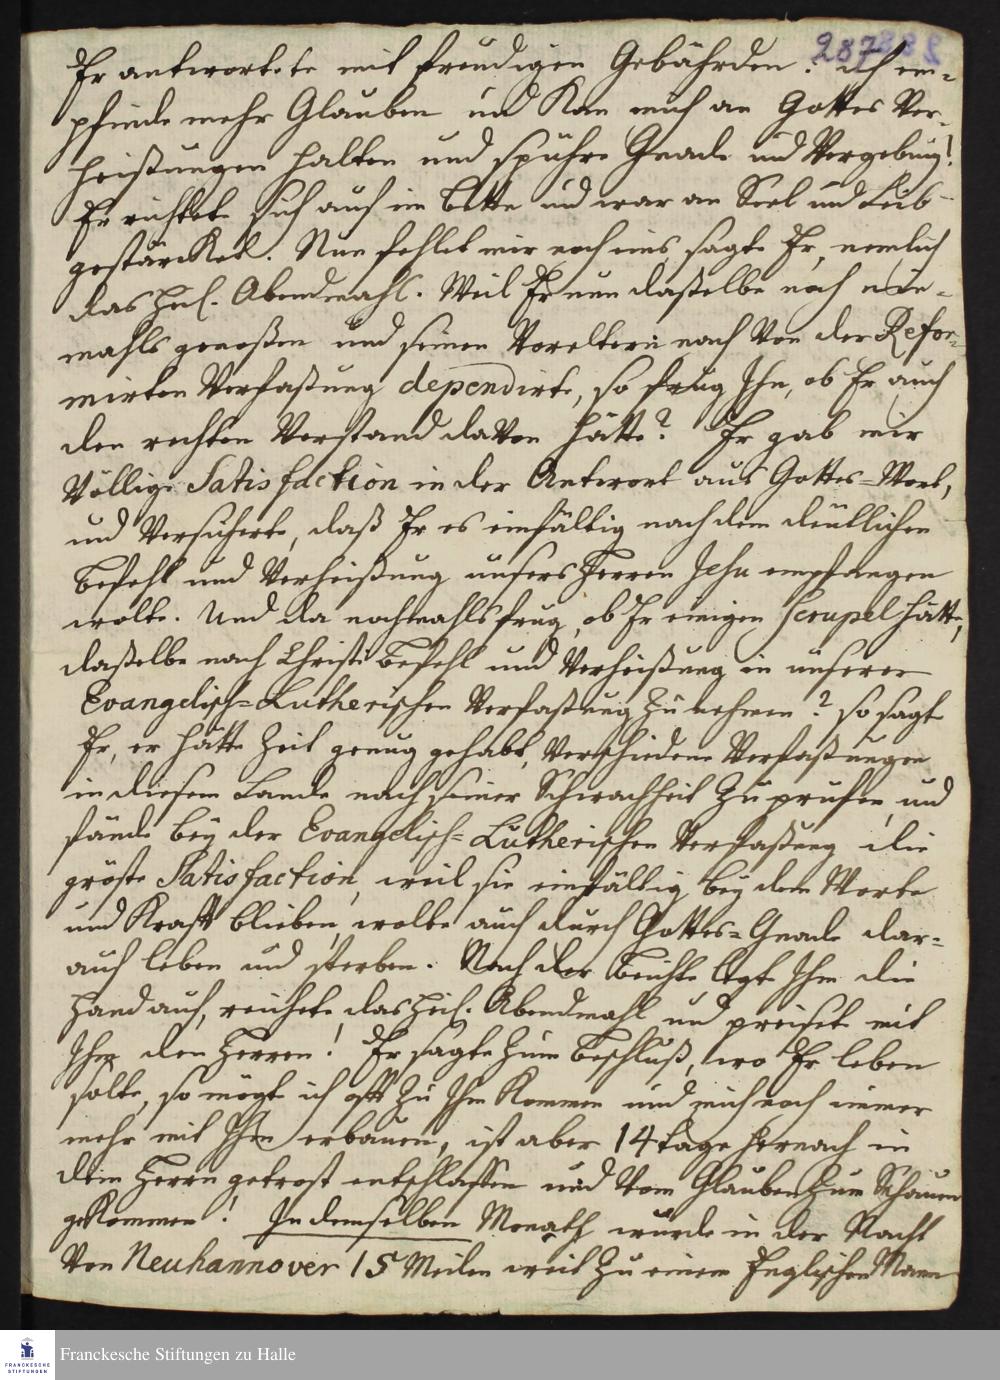 287
Er antwortete mit freudigen Gebährden: ich em-
pfinde mehr Glauben und Kan mich an Gottes Ver-
heißungen halten und spühre Gnade und Vergebung!
Er richtet sich auf im Bette und war an Seel und Leib
gestärcket. Nun fehlet mir noch eins, sagte Er, nemlich
das heil. Abendmahl. Weil Er nun daßelbe noch nie-
mahls genoßen und seinen Voreltern nach von der Refor-
mirten Verfaßung dependirte, so frug Ihn, ob Er auch
den rechten Verstand davon hätte? Er gab mir
Völlige Satisfaction in der Antwort aus Gottes-Wort,
und Versicherte, daß Er es einfältig nach dem deutlichen
Befehl und Verheißung unsers Herren Jesu empfangen
wolte. Und da nochmahls frug, ob Er einigen scrupel hätte,
daßelbe nach Christi Befehl und Verheißung in unserer
Evangelisch-Lutherischen Verfaßung zu nehmen? so sagt
Er, er hätte Zeit genug gehabt, Verschiedene Verfaßungen
in diesem Lande nach seiner Schwachheit zu prüfen, und
fände bey der Evangelisch-Lutherischen Verfaßung die
größte Satisfaction, weil sie einfältig bey dem Worte
und Krafft blieben, wolte auch durch Gottes-Gnade dar-
auf leben und sterben. Nach der Beichte legt Ihm die
Hand auf, reichete das heil. Abendmahl und preisete mit
Ihm den Herren! Er sagte zum Beschluß, wo Er leben
solte, so mögt ich oft zu Ihm Kommen und mich noch immer
mehr mit Ihm erbauen, ist aber 14 tage hernach in
dem Herrn getrost entschlaffen und vom Glauben zum Schauen
gekommen! In demselben Monath wurde in der Nacht
Von Neuhannover 15 Meilen weit zu einem Englischen Mann
FRANCKESCHE
STIFTUNGEN
Franckesche Stiftungen zu Halle